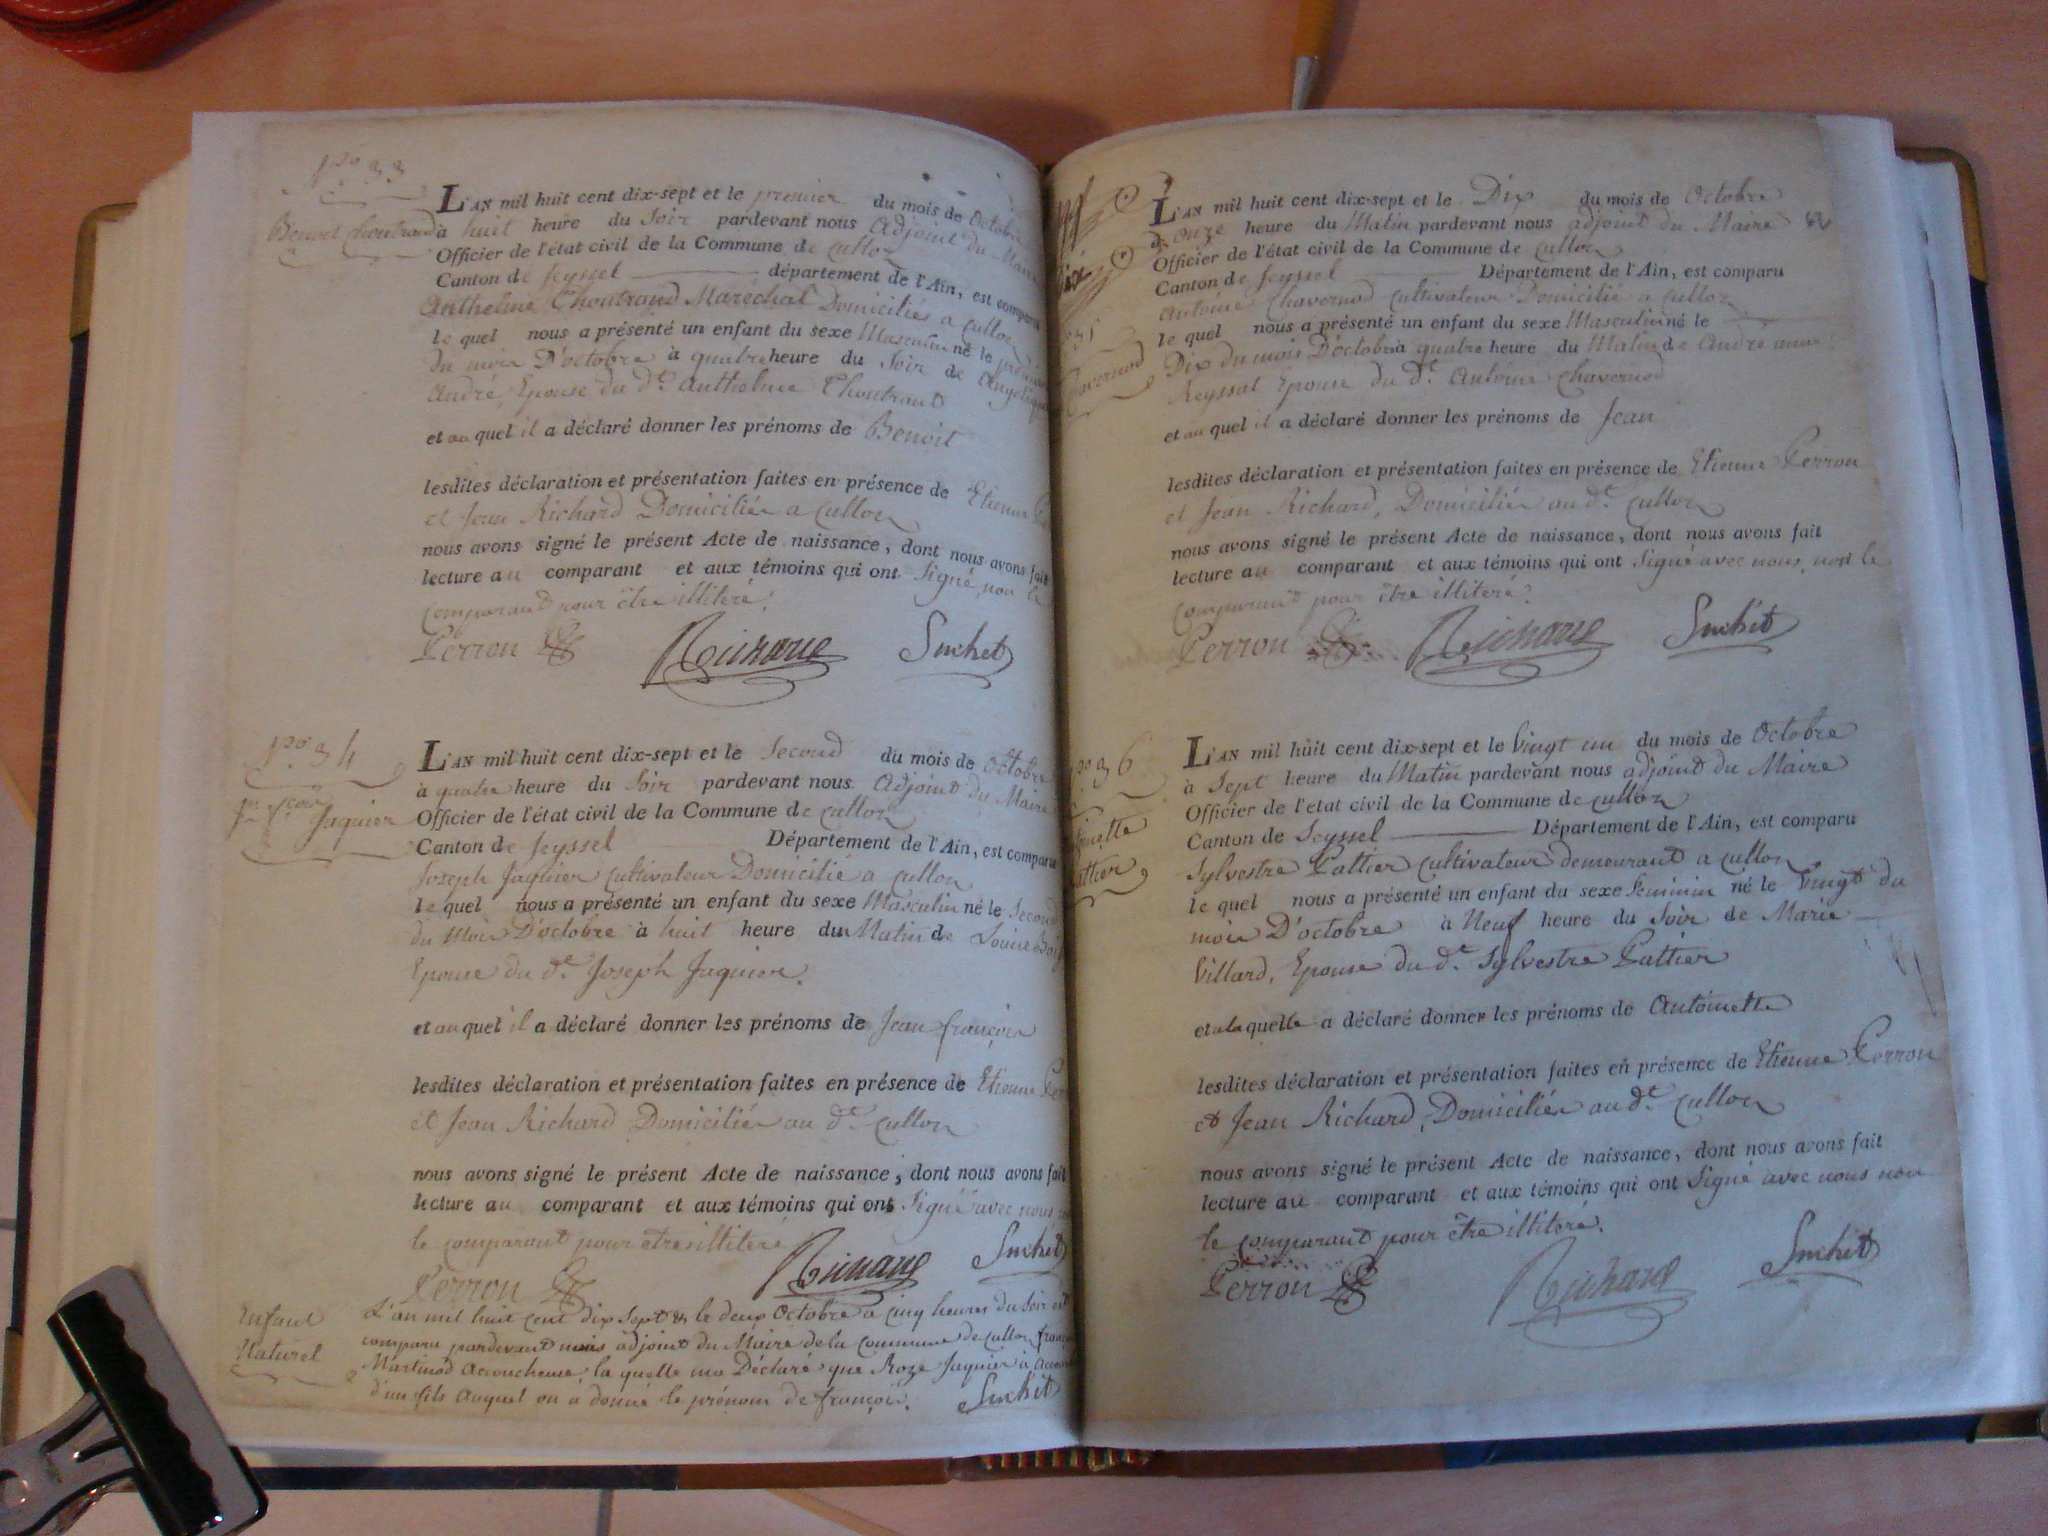 N.º 33
Benoit Choutrand
L'AN mil huit cent dix-sept et le premier du mois de Octobre
à huit heure du Soir pardevant nous Adjoint du Maire
Officier de l'état civil de la Commune de Culloz
Canton de Seyssel département de l'Ain, est comparu
Anthelme Choutrand Maréchal Domiciliés a Culloz
le quel nous a présenté un enfant du sexe Masculin né le premier
du mois D'octobre à quatre heure du Soir de Angelique
André, Epouse du d.t Anthelme Choutrant
et au quel il a déclaré donner les prénoms de Benoit
lesdites déclaration et présentation faites en présence de Etienne
et Jean Richard Domiciliés a Culloz
nous avons signé le présent Acte de naissance, dont nous avons fait
lecture au comparant et aux témoins qui ont Signé, non le
comparant pour être illiteré.
Perron Richard Suchet
N.º 34
Jaquier
L'AN mil huit cent dix-sept et le Second du mois de Octobre
à quatre heure du Soir pardevant nous Adjoint du Maire
Officier de l'état civil de la Commune de Culloz
Canton de Seyssel Département de l'Ain, est comparu
Joseph Jaquier Cultivateur Domicilié a Culloz
le quel nous a présenté un enfant du sexe Masculin né le Second
du mois D'octobre à huit heure du Matin de Louise
Epouse du d.t Joseph Jaquier.
et au quel il a déclaré donner les prénoms de Jean françois
lesdites déclaration et présentation faites en présence de Etienne
et Jean Richard Domiciliés au d.t Culloz
nous avons signé le présent Acte de naissance, dont nous avons fait
lecture au comparant et aux témoins qui ont Signé avec nous
le comparant pour etre illiteré
Perron Richard Suchet
Enfant
Naturel
L'an mil huit cent dix Sept & le deux Octobre a cinq heures du Soir est
comparu pardevant nous adjoint du Maire de la Commune de Culloz
Martinod Accoucheuse, la quelle ma Déclaré que Roze Jaquier à
d'un fils Auquel on a donné le prénom de françois. Suchet
Chavernod
L'AN mil huit cent dix-sept et le Dix du mois de Octobre
à onze heure du Matin pardevant nous adjoint du Maire
Officier de l'état civil de la Commune de Culloz
Canton de Seyssel Département de l'Ain, est comparu
Antoine Chavernod Cultivateur Domicilié a Culloz
le quel nous a présenté un enfant du sexe Masculin né le
Dix du mois D'octobre à quatre heure du Matin de André anne
Reyssat Epouse du d.t Antoine Chavernod
et au quel il a déclaré donner les prénoms de Jean
lesdites déclaration et présentation faites en présence de Etienne Perron
et Jean Richard, Domiciliés au d.t Culloz
nous avons signé le présent Acte de naissance, dont nous avons fait
lecture au comparant et aux témoins qui ont Signé avec nous, non le
comparant pour être illiteré.
Perron Richard Suchet
36
L'AN mil huit cent dix-sept et le Vingt un du mois de Octobre
à Sept heure du Matin pardevant nous adjoint du Maire
Officier de l'etat civil de la Commune de Culloz
Canton de Seyssel Département de l'Ain, est comparu
Sylvestre Pattier Cultivateur demeurant a Culloz
le quel nous a présenté un enfant du sexe Feminin né le Vingt du
mois D'octobre à Neuf heure du Soir de Marie
Villard, Epouse du d.t Sylvestre Pattier
et a la quelle a déclaré donner les prénoms de Antoinette
lesdites déclaration et présentation faites en présence de Etienne Perron
et Jean Richard, Domiciliés au d.t Culloz
nous avons signé le présent Acte de naissance, dont nous avons fait
lecture au comparant et aux témoins qui ont Signé avec nous non
le comparant pour être illiteré.
Perron Richard Suchet